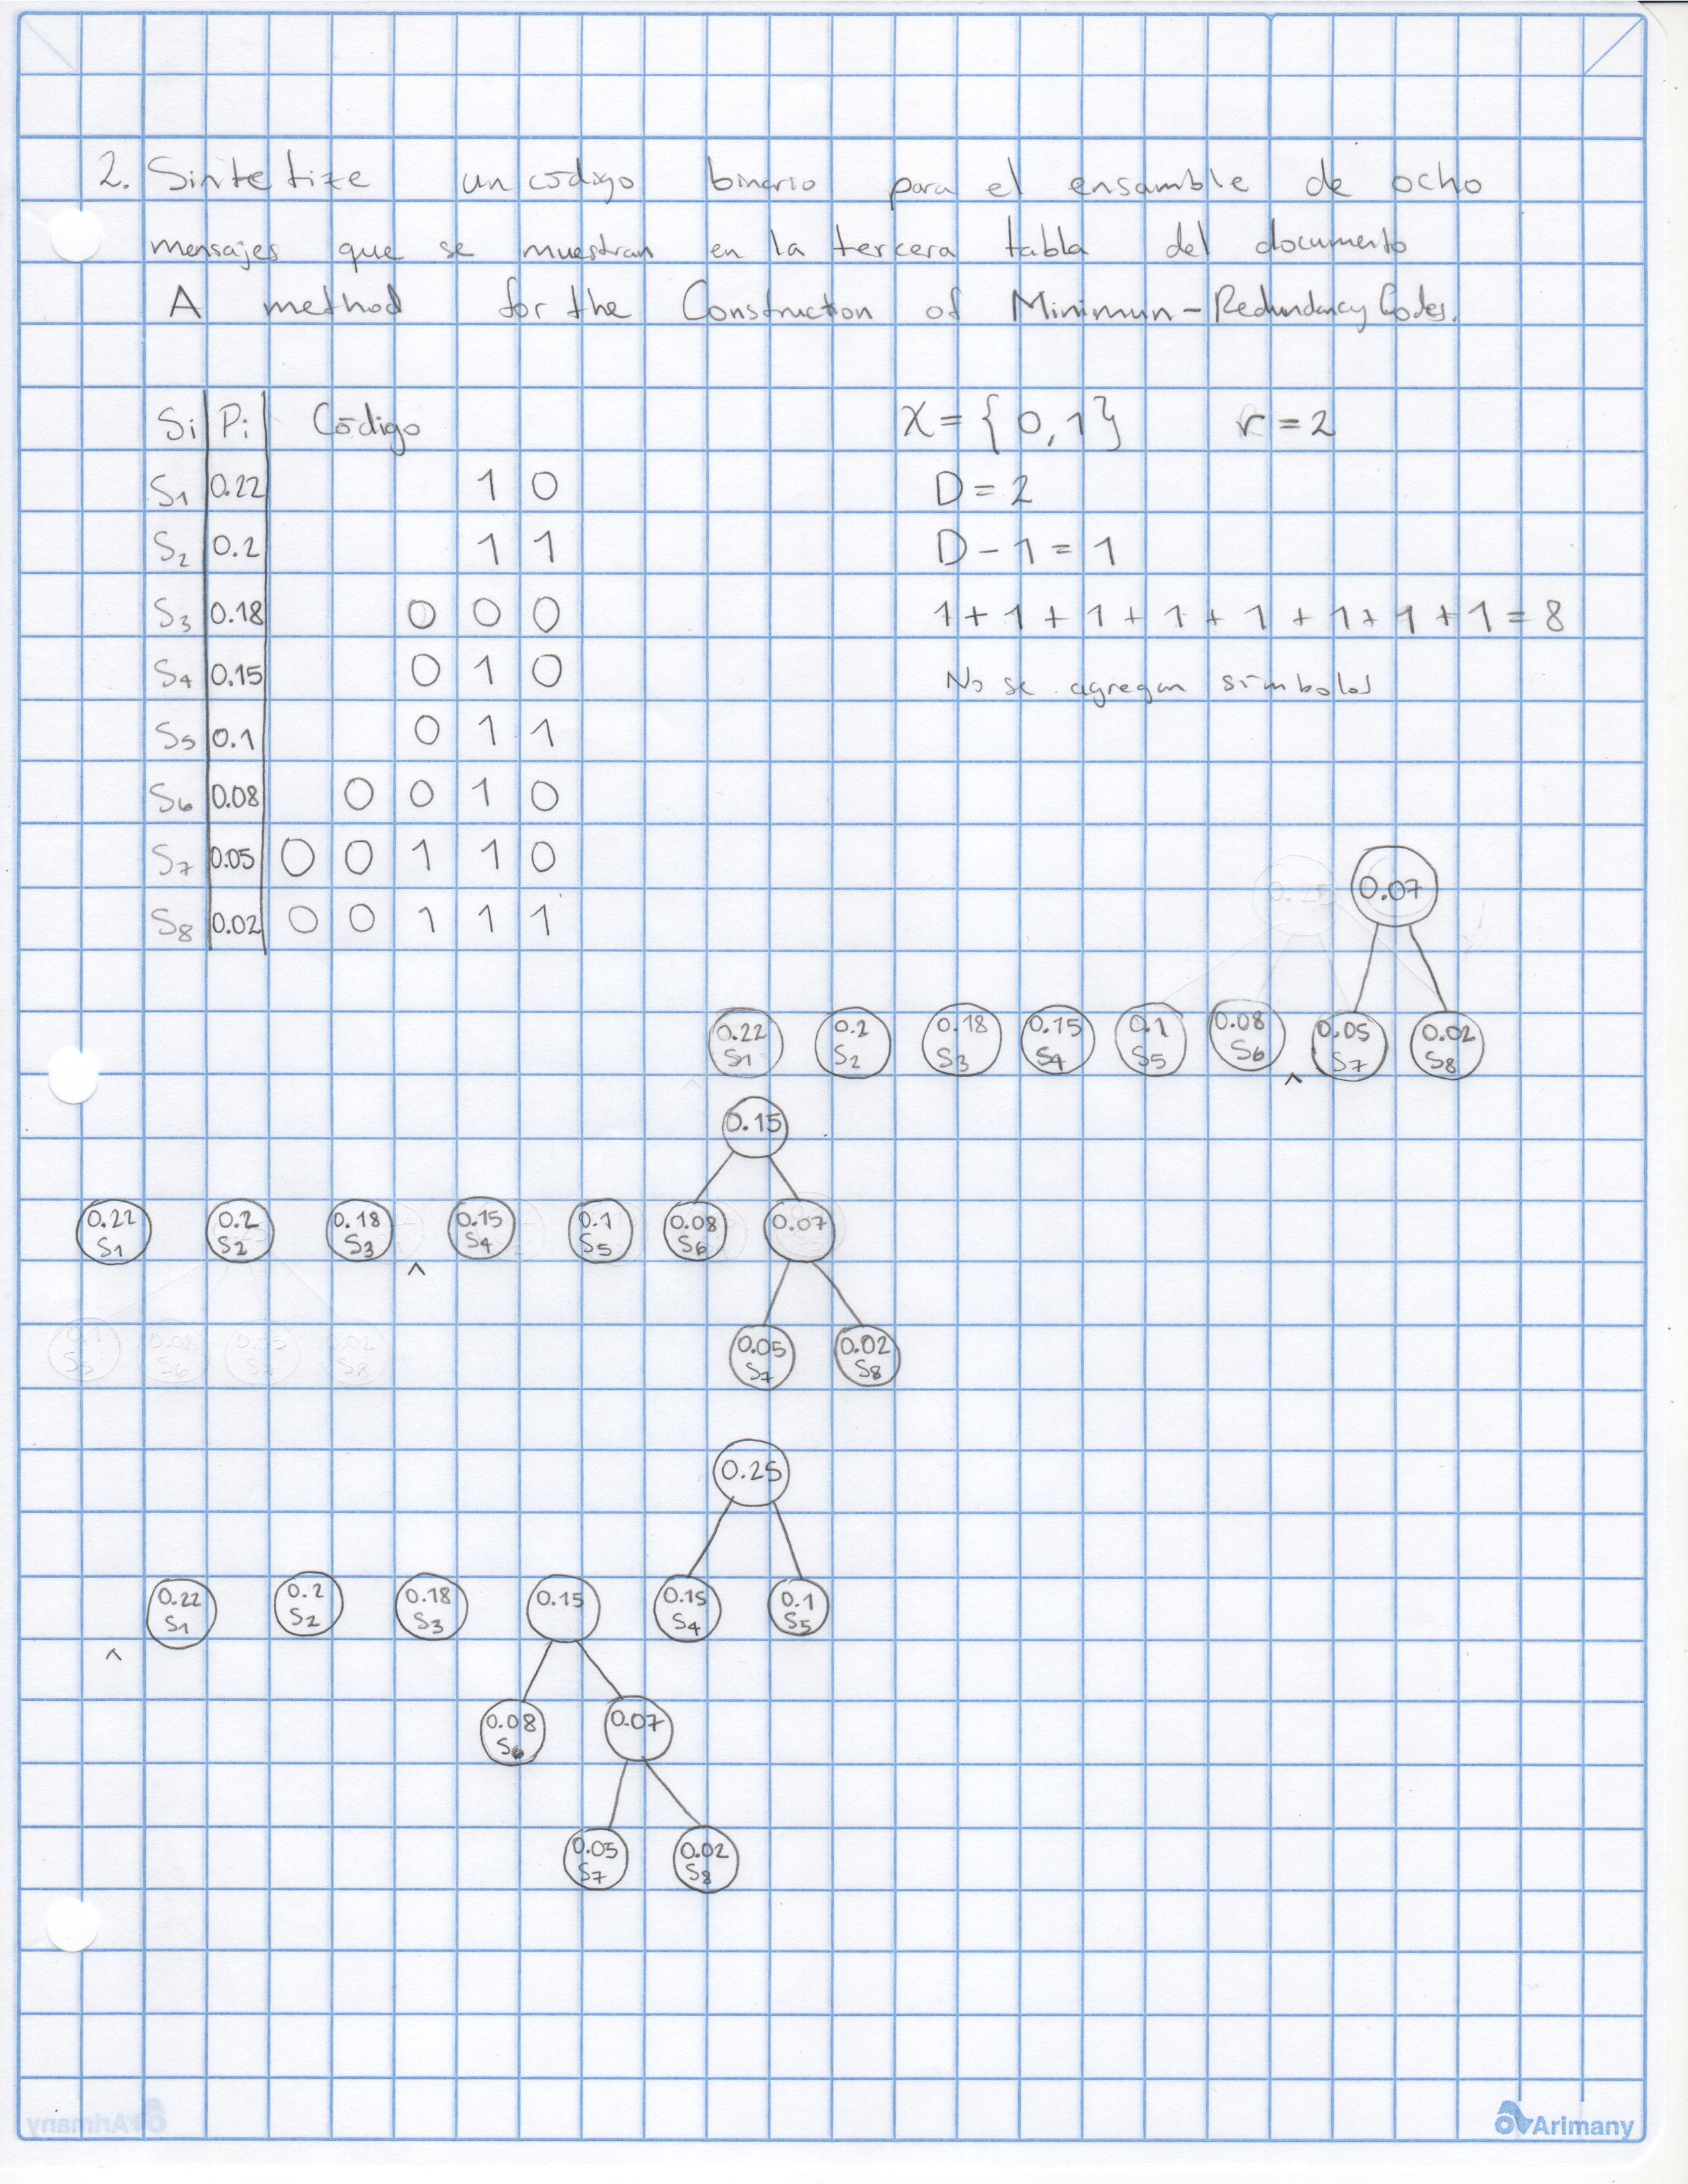 2. Sintetize un código binario para el ensamble de ocho
mensajes que se muestran en la tercera tabla del documento
A method for the Construction of Minimun-Redundancy Codes.
Si Pi Código
S1 0.22 1 0
S2 0.2 1 1
S3 0.18 0 0 0
S4 0.15 0 1 0
S5 0.1 0 1 1
S6 0.08 0 0 1 0
S7 0.05 0 0 1 1 0
S8 0.02 0 0 1 1 1
X = {0,1} r = 2
D = 2
D - 1 = 1
1 + 1 + 1 + 1 + 1 + 1 + 1 + 1 = 8
No se agregan símbolos
0.07
0.22 0.2 0.18 0.15 0.1 0.08 0.05 0.02
S1 S2 S3 S4 S5 S6 ^ S7 S8
0.15
0.22 0.2 0.18 0.15 0.1 0.08 0.07
S1 S2 S3 ^ S4 S5 S6
0.05 0.02
S7 S8
0.25
0.22 0.2 0.18 0.15 0.15 0.1
^ S1 S2 S3 S4 S5
0.08 0.07
S6
0.05 0.02
S7 S8
Arimany